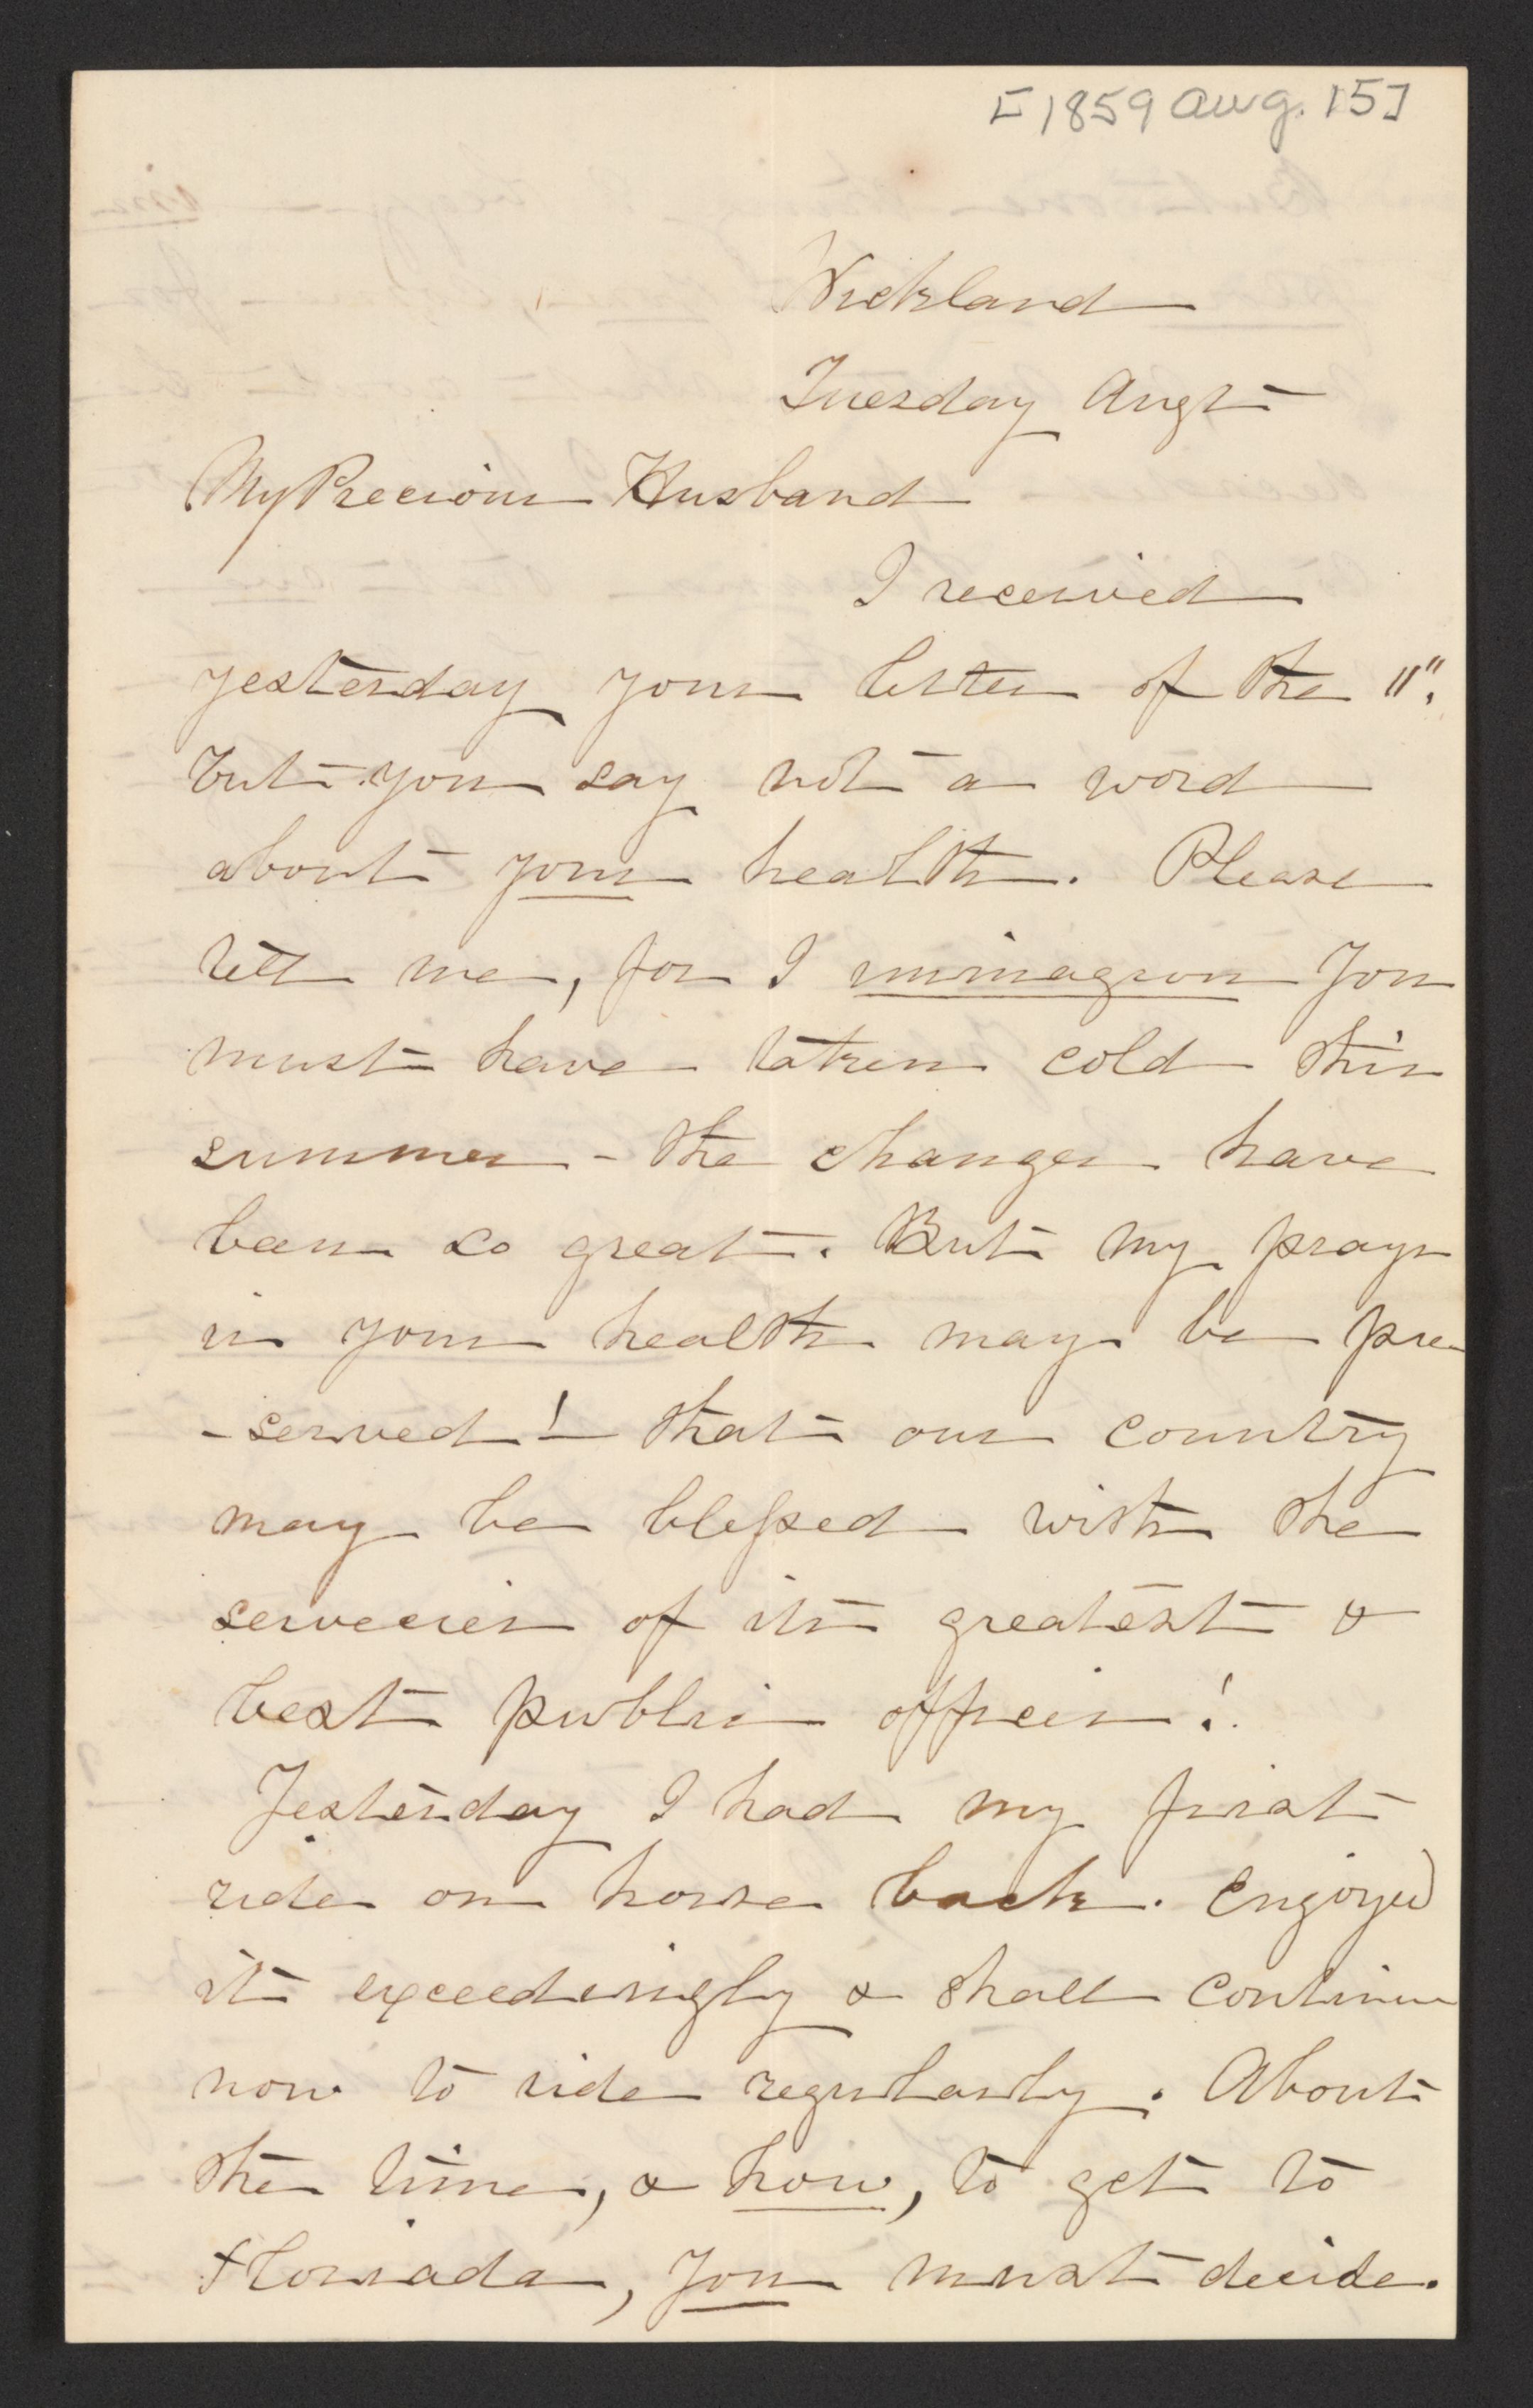 [1859 Aug. 15]
Wickland
Tuesday Augt
My Precious Husband
I received
yesterday your letter of the 11".
but you say not a word
about your health. Please
tell me, for I immagion You
must have taken cold this
summer - the changes have
been so great. But my prayr
is your health may be pre-
-served! that our country
may be blessed with the
serveeies of its greatest &
best public officer!
Yesterday I had my first
ride on horse back. Enjoyed
it exceedingly & shall continue
now to ride regularly. About
the time, & how, to get to
Floriada, You must decide.